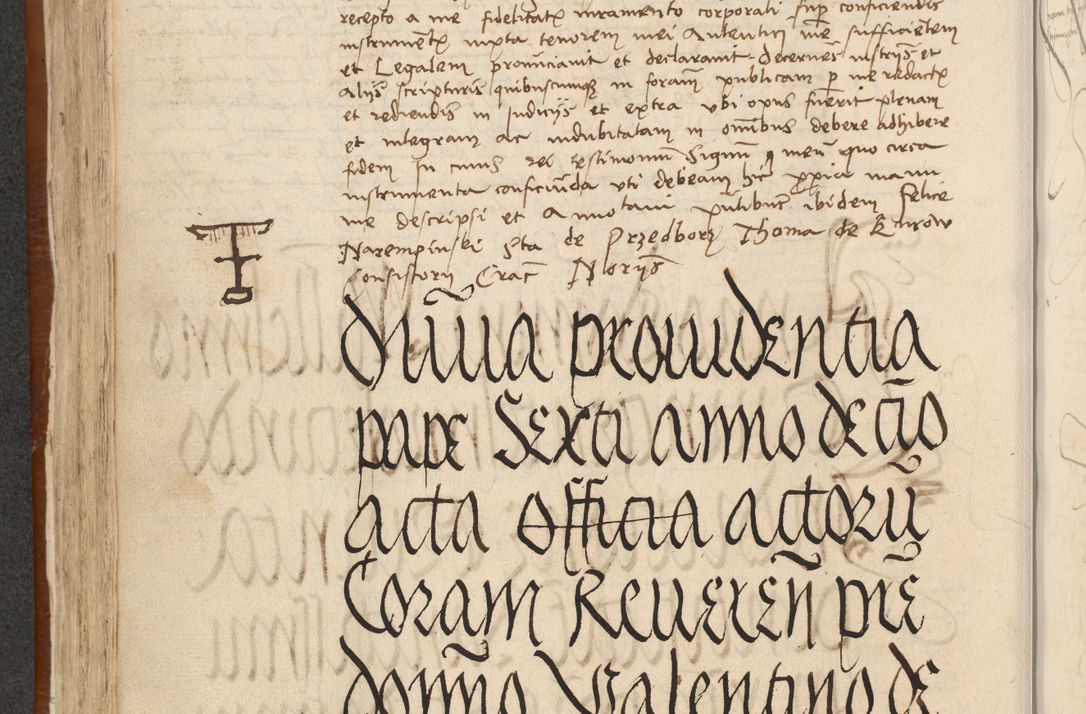 recepto a me fidelitat iuramento corporali sup conficiendis
instrument iuxta tenorem mei Autentici me sufficientem
et Legalem pronunciauit et declarauit decernens instris et
Alys scripturis quibuscumq in foram publicam p me redact
et rediendis in Judicys et extra vbi opus fuerit plenam
et integram ac indubitatam in omibus debere adhibere
fidem In cuius rei testimoniu Signu meu quo circa
instrumenta conficiuda vti debeam hic ppria manu
me descripsi et Annotaui pntibus ibidem Felice
Narempinski Sta de Przedborz Thoma de Kurow
Consistorij Crac Norijs
diuina prouidentia
pape Sexti anno decio
acta officia actoru
Coram Reueren pre
domno Valentino de